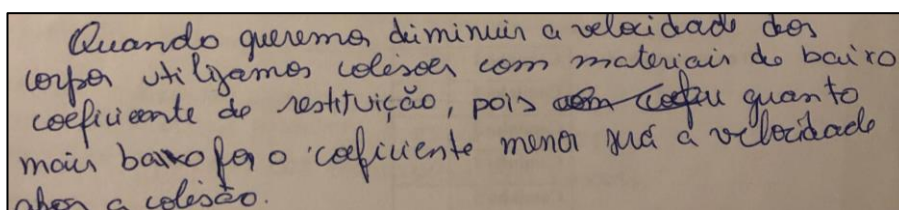 Quando queremos diminuir a velocidade dos
corpos utilizamos colisões com materiais de baixo
coeficiente de restituição, pois quanto
mais baixo for o coeficiente menor será a velocidade
após a colisão.